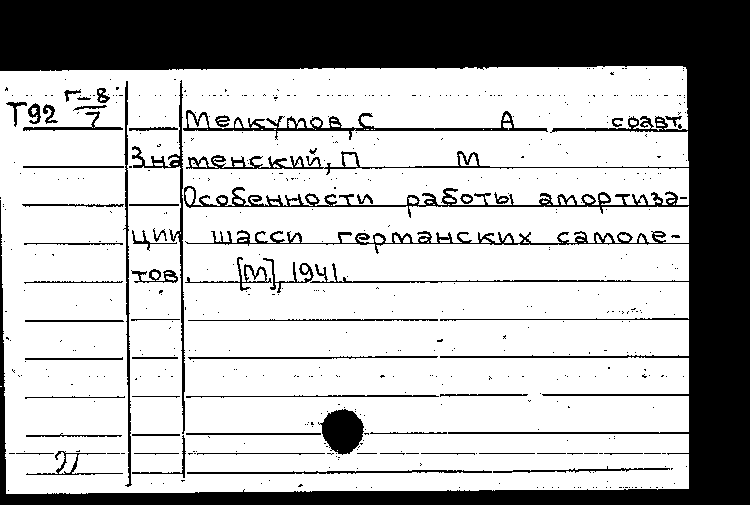 Т92 Г-8/7
Мелкумов, С А соавт.
Знаменский, П М
Особенности работы амортиза-
ции шасси германских самоле-
тов. [М], 1941.
21